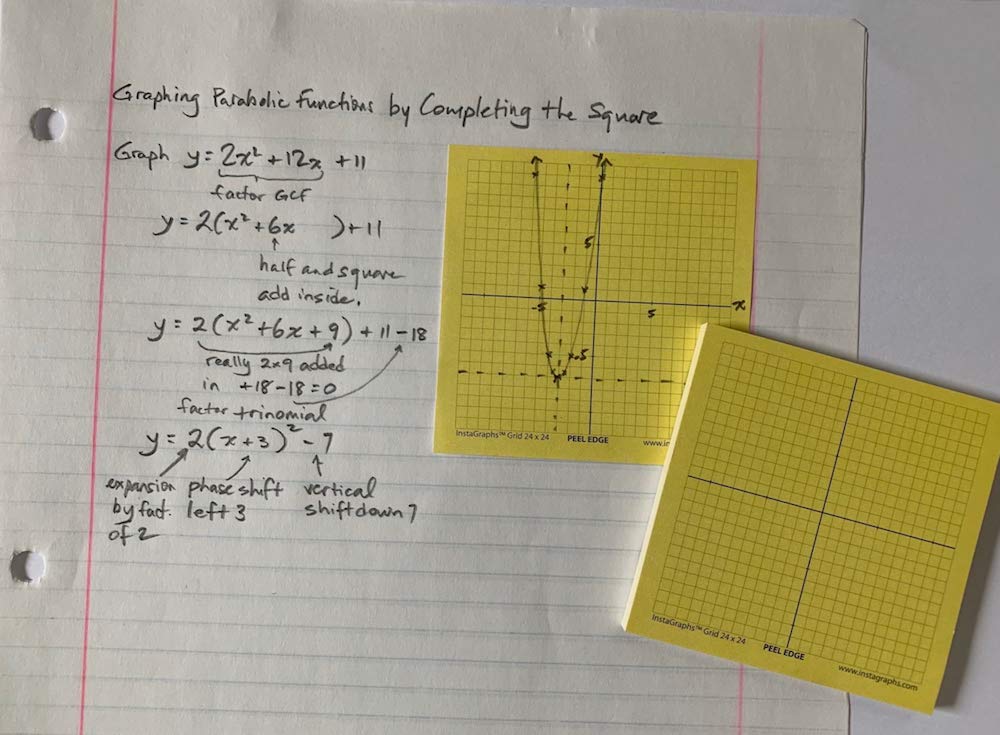 Graphing Parabolic Functions by Completing the Square
Graph y = 2x² + 12x + 11
factor GCF
y = 2(x² + 6x    ) + 11
half and square
add inside.
y = 2(x² + 6x + 9) + 11 - 18
really 2x9 added
in +18 - 18 = 0
factor trinomial
y = 2(x + 3)² - 7
expansion phase shift vertical
by fact. left 3 shift down 7
of 2
y
5
x
-5
5
-5
InstaGraphs™ Grid 24 x 24 PEEL EDGE
InstaGraphs™ Grid 24 x 24 PEEL EDGE www.instagraphs.com